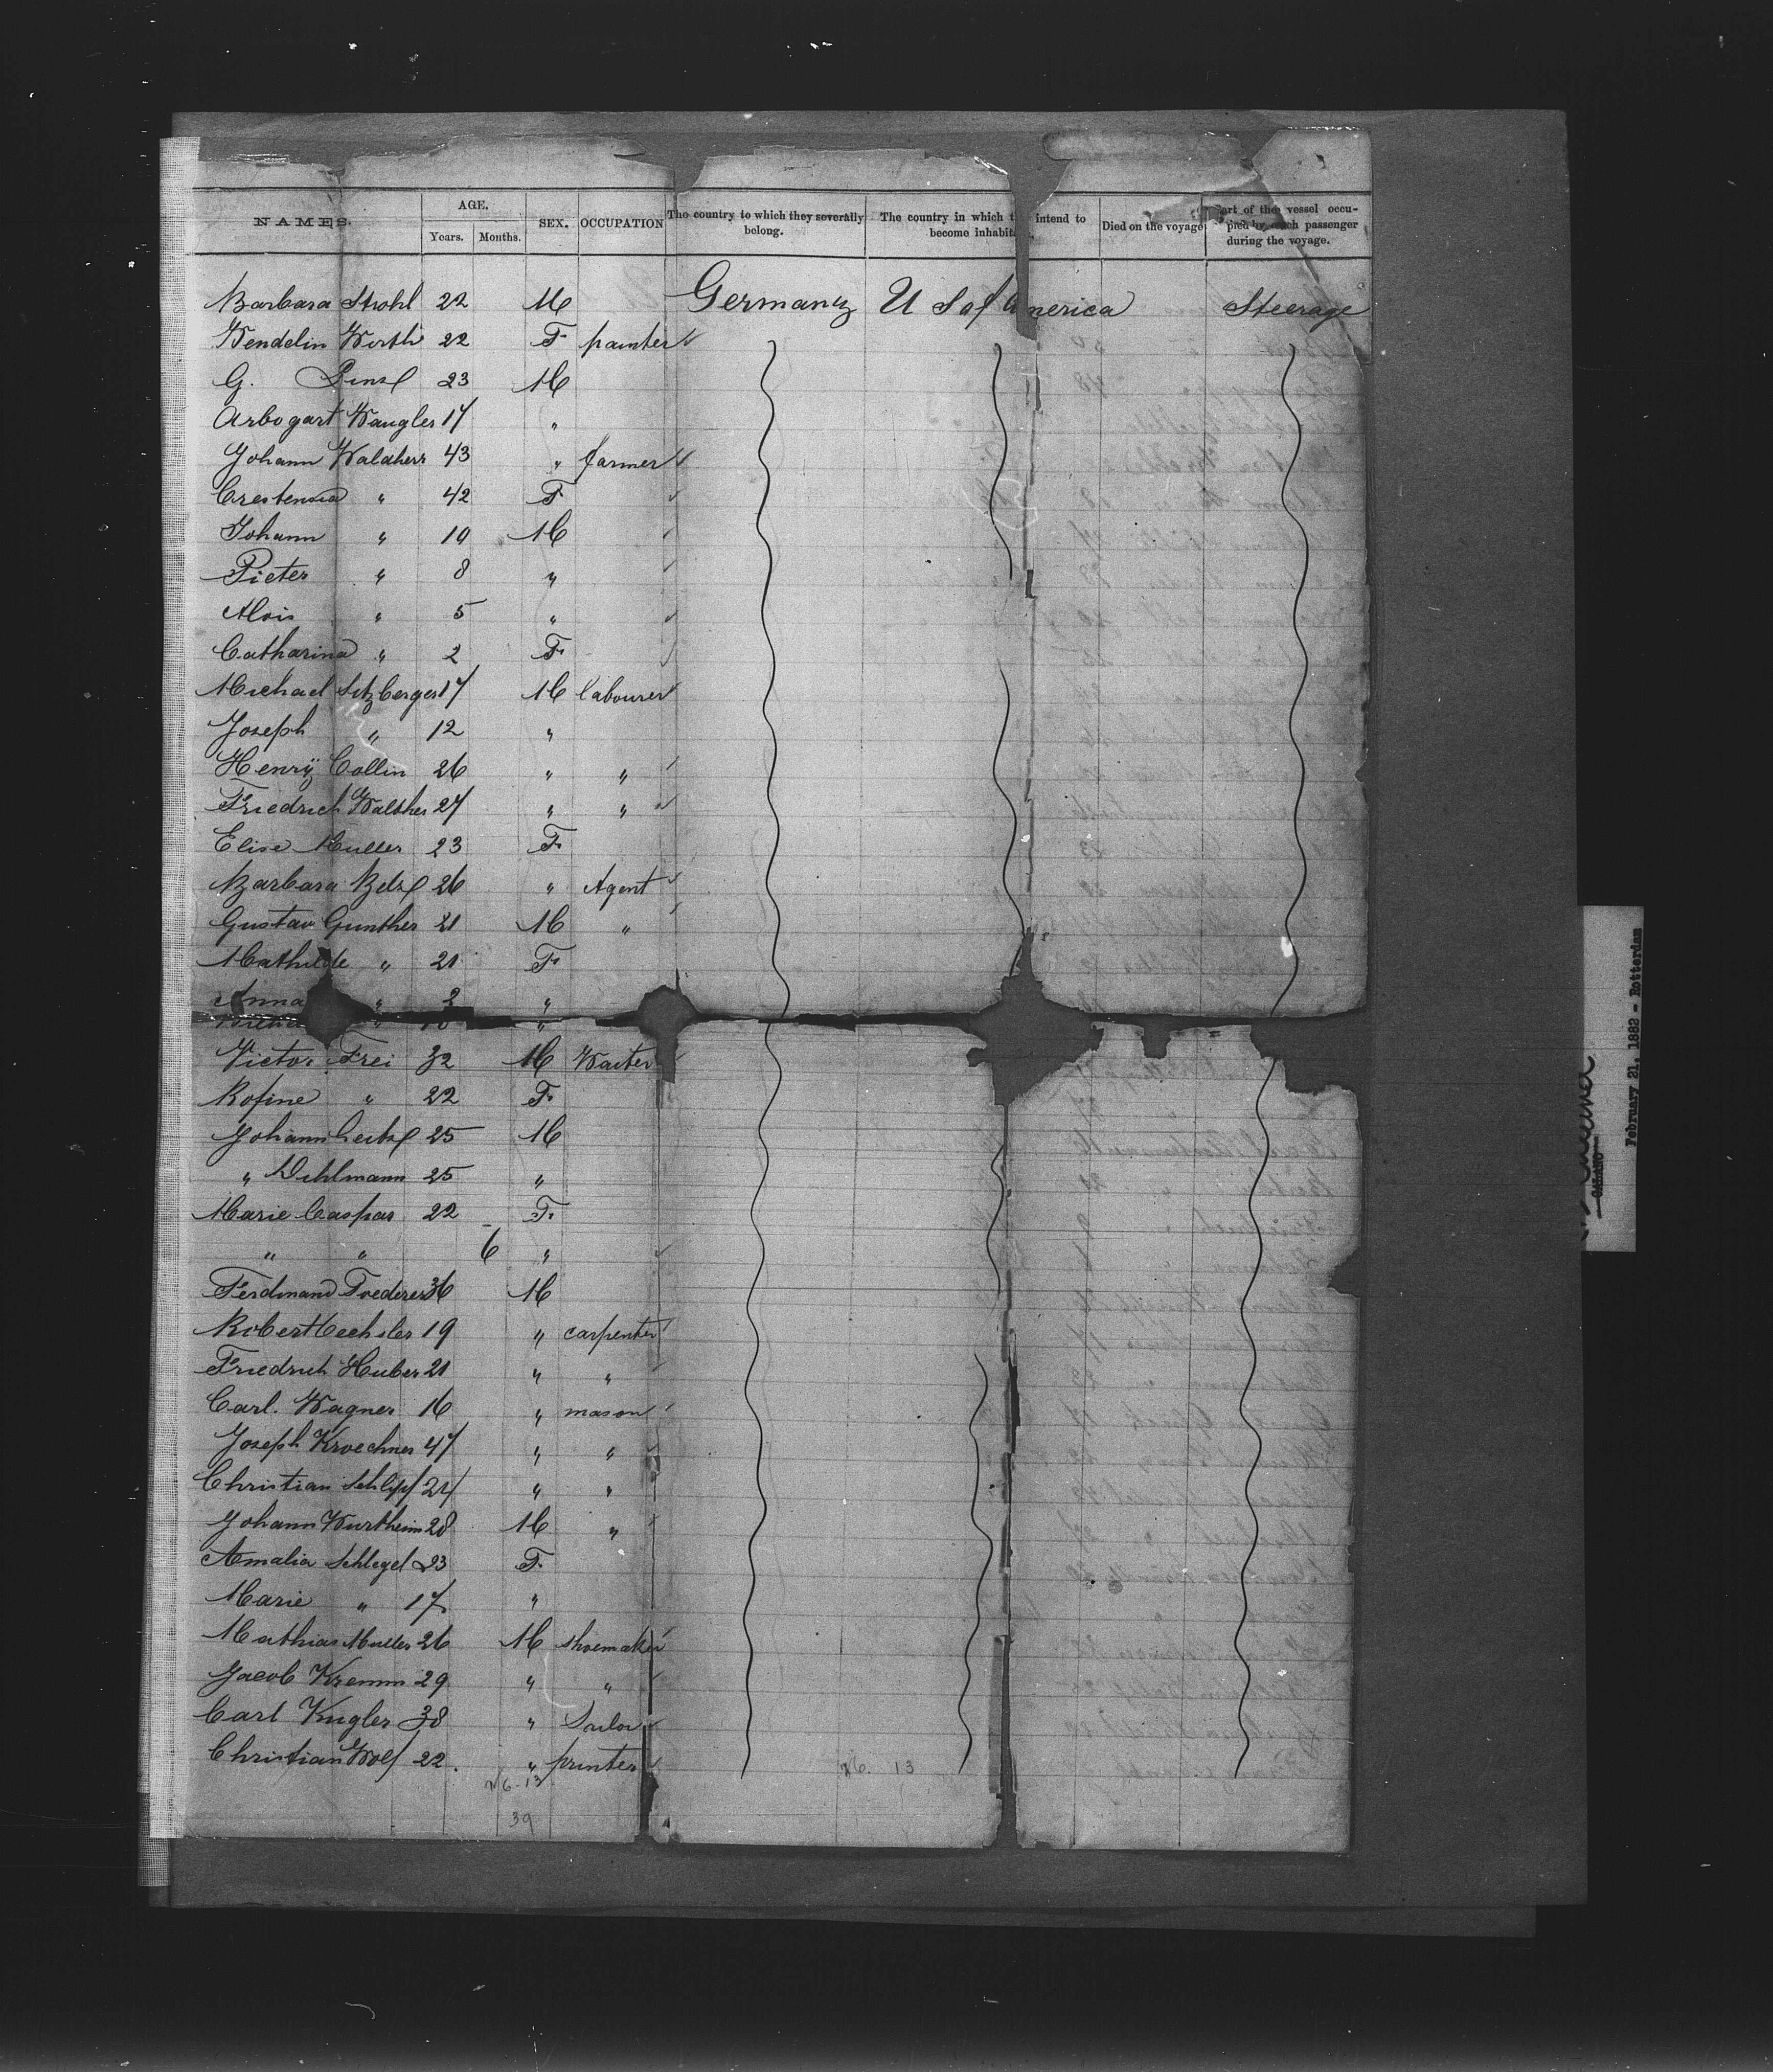 NAMES. AGE. SEX. OCCUPATION The country to which they severally belong. The country in which intend to become inhabita Died on the voyage art of the vessel occu-pied by each passenger during the voyage.
Years. Months.
Barbara Strohl 22 M Germany U S of America Steerage
Wendelin Worth 22 F painter
G. 23 M
Arbogart Wangler 17 "
Johann Waldherr 43 " farmer
Crestensia " 42 F
Johann " 10 M
Pieter " 8 "
Alois " 5 "
Catharina " 2 F
Michael Sitzberger 17 M labourer
Joseph " 12 "
Henrÿ Collin 26 " "
Friedrich Walther 27 " "
Elise Muller 23 F
Barbara 26 " Agent
Gustav Gunther 21 M "
Mathilde " 21 F
Anna " 2 "
" "
Victor Frei 32 M Waiter
Rosine " 22 F
Johann 25 M
" Dihlmann 25 "
Marie Caspar 22 F
" " 6 "
Ferdinand 36 M
Robert Hechsler 19 " carpenter
Friedrich Huber 21 " "
Carl. Wagner 16 " mason
Joseph Kroechner 47 " "
Christian Schlipf 24 " "
Johann Wurtheim 28 M "
Amalia Schlegel 23 F
Marie " 17 "
Mathias Muller 26 M shoemaker
Jacob Kremm 29 " "
Carl Kugler 38 "
Christian Wolf 22. " printer
26-13
39
26. 13
February 21, 1882 - Rotterdam